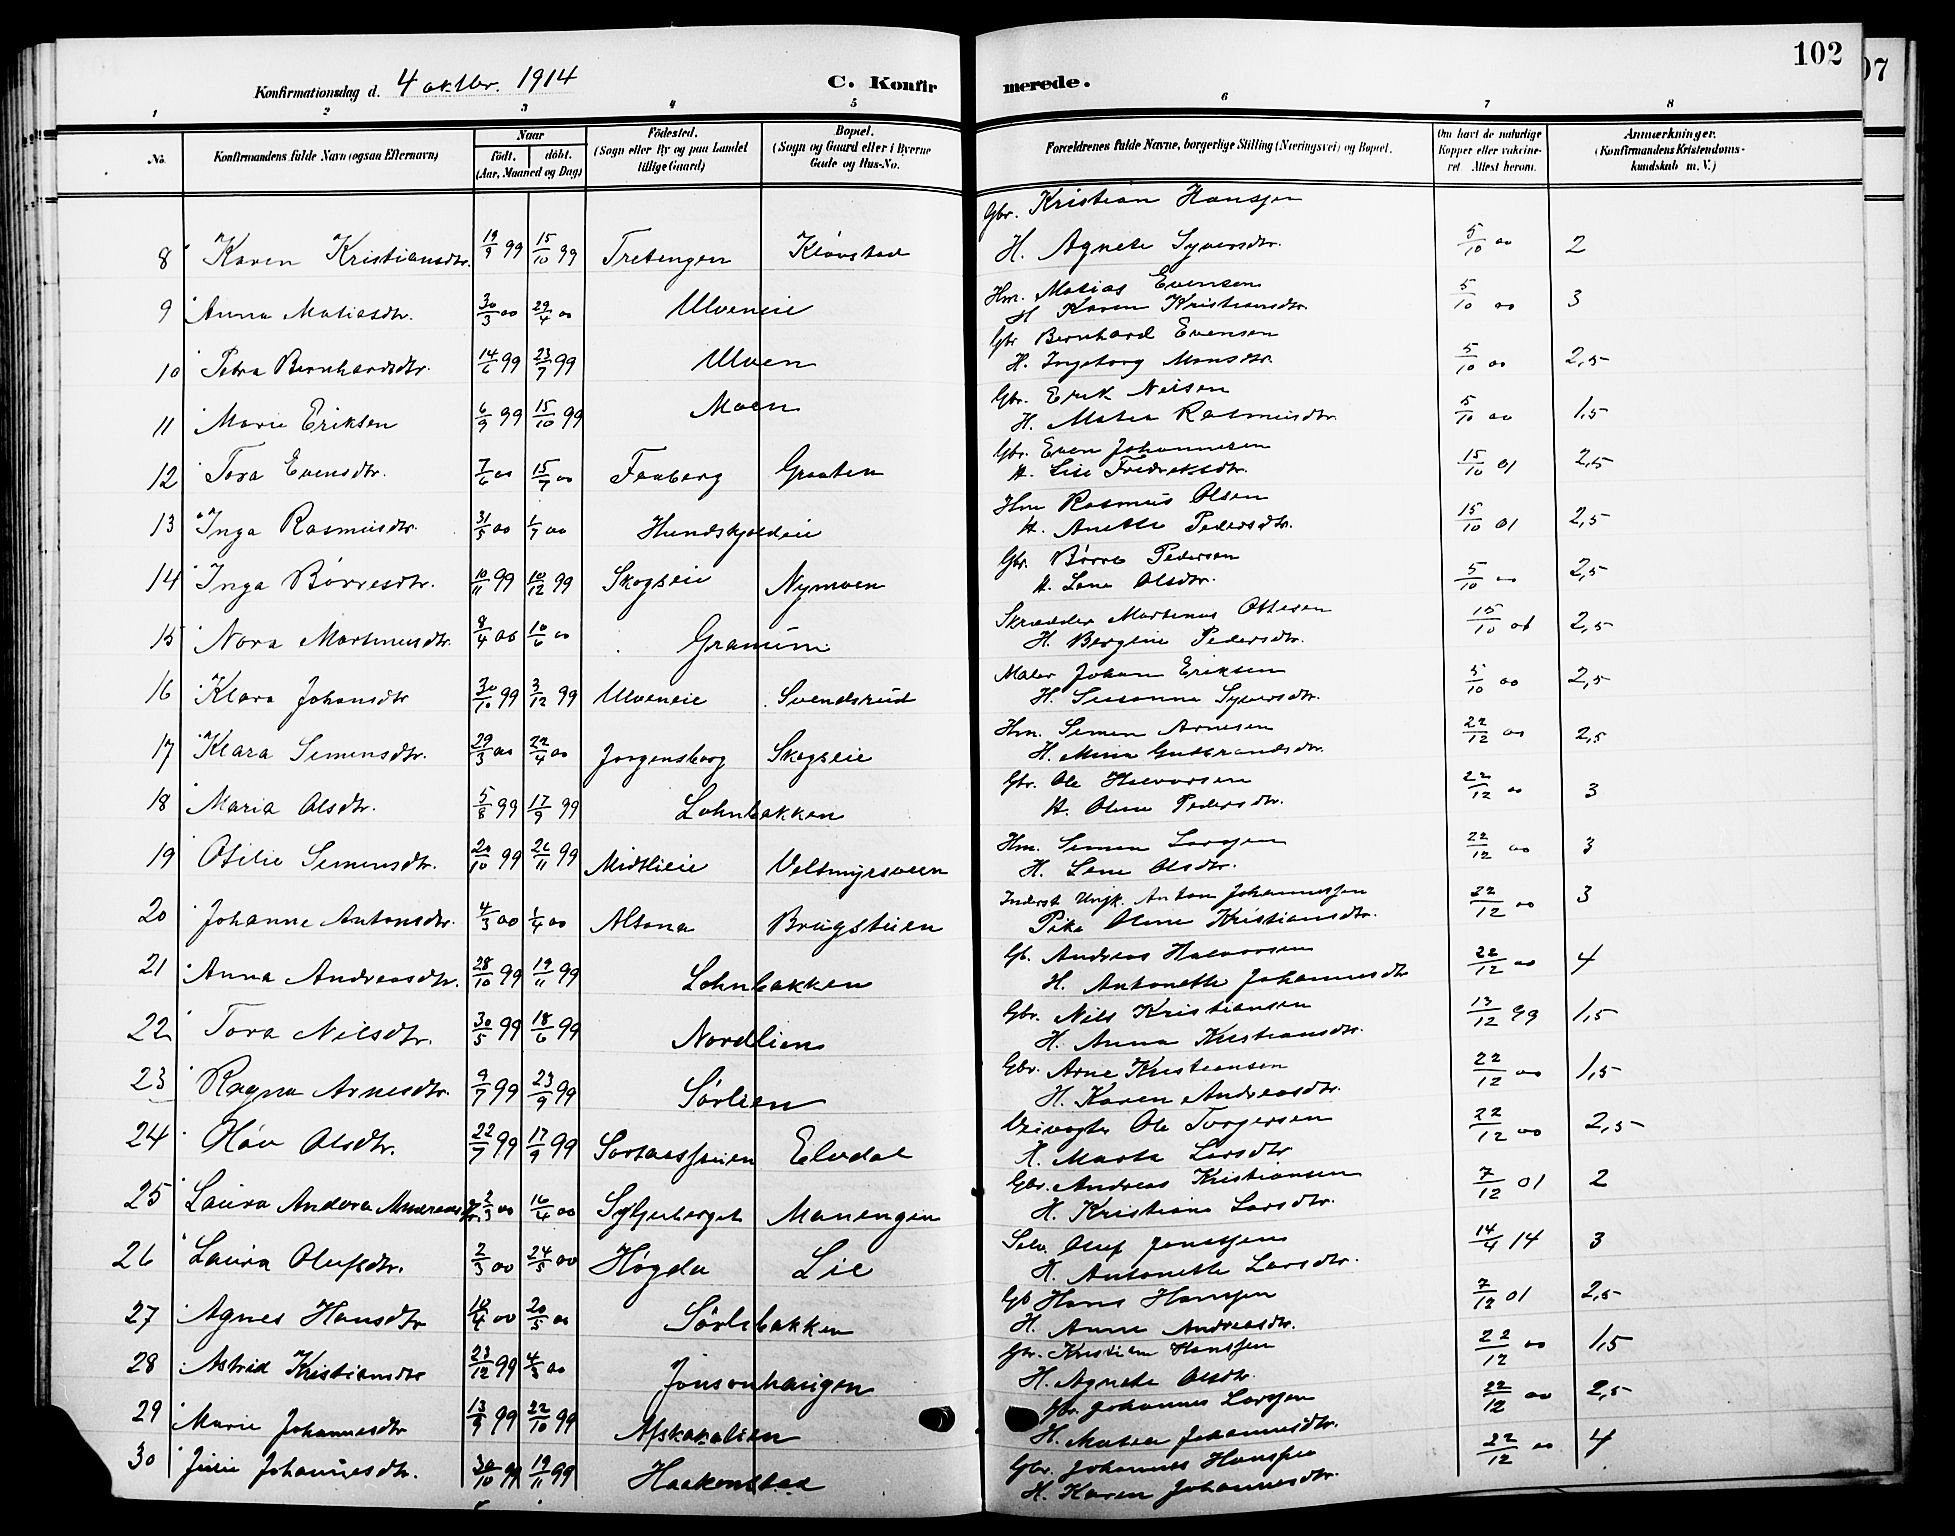 102
07
Konfirmationsdag d. 4 oktbr. 1914
C. Konfirmerede.
1 2 3 4 5 6 7 8
No.
Konfirmandens fulde Navn (ogsaa Efternavn)
Naar
født. døbt.
(Aar, Maaned og Dag)
Fødested.
(Sogn eller By og paa Landet tillige Gaard)
Bopæl.
(Sogn og Gaard eller i Byerne Gade og Hus-No.
Forældrenes fulde Navne, borgerlige Stilling (Næringsvei) og Bopæl.
Om havt de naturlige Kopper eller vakcineret Attest herom.
Anmærkninger.
(Konfirmandens Kristendomskundskab m. V.)
Gbr. Kristian Hansen
8 Karen Kristiansdtr. 19/9 99 15/10 99 Tretengen Kløvstad H. Agnete Syversdtr. 5/10 00 2
Hm. Matias Evensen
9 Anna Matiasdtr. 30/3 00 29/4 00 Ulveneie H Karen Kristiansdtr. 5/10 00 3
Gbr Bernhard Evensen
10 Petra Bernhardsdtr. 14/6 99 23/7 99 Ulven H. Ingeborg Monsdtr. 5/10 00 2,5
Gbr. Erik Nilsen
11 Marie Eriksen 6/9 99 15/10 99 Moen H. Matea Rasmusdtr. 5/10 00 1,5
Gbr. Even Johannesen
12 Tora Evensdtr. 7/6 00 15/7 00 Faaberg Graaten H. Lise Fredriksdtr. 15/10 01 2,5
Hm Rasmus Olsen
13 Inga Rasmusdtr. 31/5 00 1/7 00 Hundskjoldeie H. Anette Pedersdtr. 15/10 01 2,5
Gbr. Børre Pedersen
14 Inga Børresdtr. 10/11 99 10/12 99 Skogseie Nymoen H. Lene Olsdtr. 5/10 00 2,5
Skrædder Martinus Ottesen
15 Nora Martinusdtr. 8/4 00 10/6 00 Granum H. Bergine Pedersdtr. 15/10 01 2,5
Maler Johan Eriksen
16 Klara Johansdtr 30/10 99 3/12 99 Ulveneie Svendsrud H. Susanna Syversdtr. 5/10 00 2,5
Hm. Simen Arnesen
17 Klara Simensdtr. 29/3 00 22/4 00 Jørgensborg Skogseie H. Mina Gudbrandsdtr. 22/12 00 2,5
Gbr. Ole Halvorsen
18 Maria Olsdtr. 5/8 99 17/9 99 Lohnbakken H. Oline Pedersdtr. 22/12 00 3
Hm. Simen Larsen
19 Otilie Simensdtr. 20/10 99 26/11 99 Midtlieie Veltmyrsveen H. Lene Olsdtr. 22/12 00 3
Inderst Ungk. Anton Johannessen
20 Johanne Antonsdtr. 4/3 00 1/4 00 Altona Brugstuen Pike Oline Kristiansdtr. 22/12 00 3
Gb. Andreas Halvorsen
21 Anna Andreasdtr. 28/10 99 19/11 99 Lohnbakken H. Antonette Johannesdtr 22/12 00 4
Gbr. Nils Kristiansen
22 Tora Nilsdtr. 30/5 99 18/6 99 Nordlien H. Anna Kristiansdtr. 13/12 99 1,5
Gbr. Arne Kristiansen
23 Ragna Arnesdtr. 9/7 99 23/9 99 Sørlien H. Karen Andreasdtr. 22/12 00 1,5
Ole Torgersen
24 Olsdtr. 22/7 99 17/9 99 Elvdal H. Marta Larsdtr 22/12 00 2,5
Gbr. Andreas Kristiansen
25 Laura Andora Andreasdtr 2/3 00 16/4 00 Syljuberget Manengen H. Kristiane Larsdtr. 7/12 01 2
Selv. Oluf Janssen
26 Laura Olufsdtr. 2/3 00 24/5 00 Høgda Lie H. Antonette Larsdtr. 14/4 14 3
Gb Hans Hansen
27 Agnes Hansdtr 10/4 00 20/5 00 Sørlibakken H. Anne Andreasdtr. 7/12 01 2,5
Gbr. Kristian Hanssen
28 Astrid Kristiansdtr 23/12 99 4/3 00 Jonsonhaugen H. Agnete Olsdtr. 22/12 00 1,5
Gbr. Johannes Larssen
29 Marie Johannesdtr 13/9 99 22/10 99 H. Matea Johannesdtr. 22/12 00 2,5
Gbr. Johannes Hanssen
30 Julie Johannesdtr. 30/10 99 19/11 99 Haakonstad H. Karen Johannesdtr. 22/12 00 4